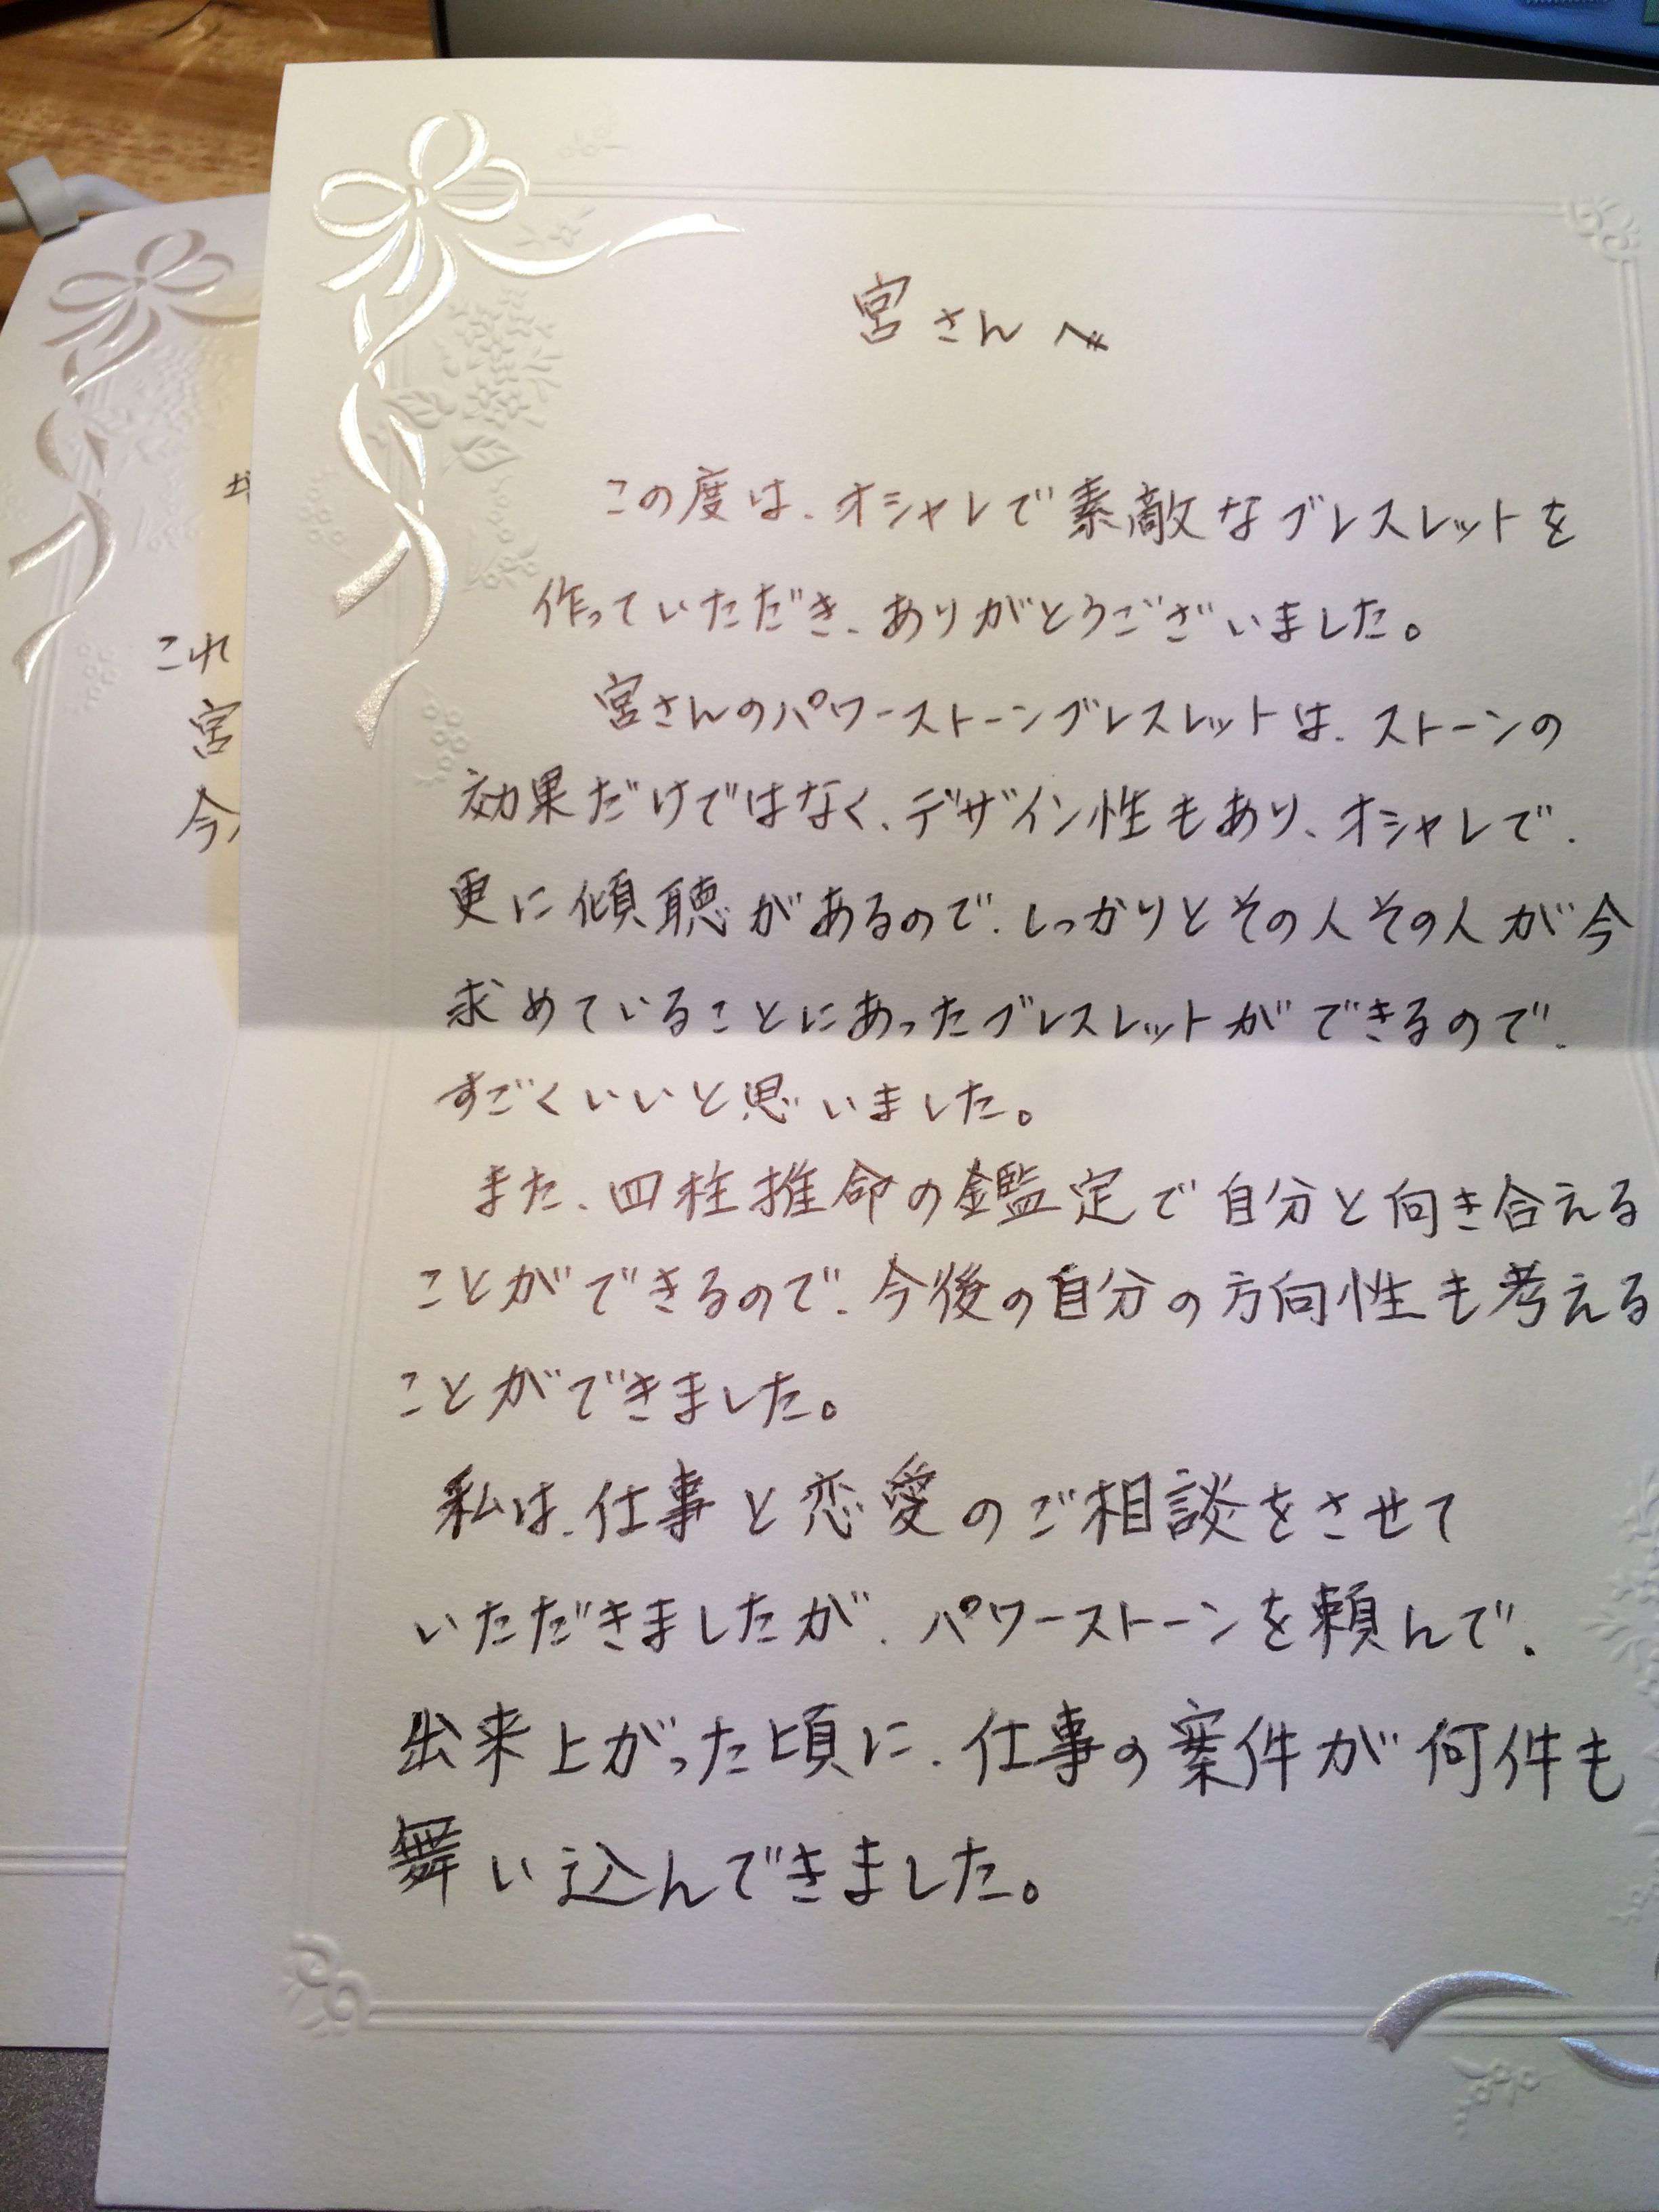 宮さんへ
この度は、オシャレで素敵なブレスレットを
作っていただき、ありがとうございました。
宮さんのパワーストーンブレスレットは、ストーンの
効果だけではなく、デザイン性もあり、オシャレで、
更に傾聴があるので、しっかりとその人その人が今
求めていることにあったブレスレットができるので、
すごくいいと思いました。
また、四柱推命の鑑定で自分と向き合える
ことができるので、今後の自分の方向性も考える
ことができました。
私は、仕事と恋愛のご相談をさせて
いただきましたが、パワーストーンを頼んで、
出来上がった頃に、仕事の案件が何件も
舞い込んできました。
これ
宮
今